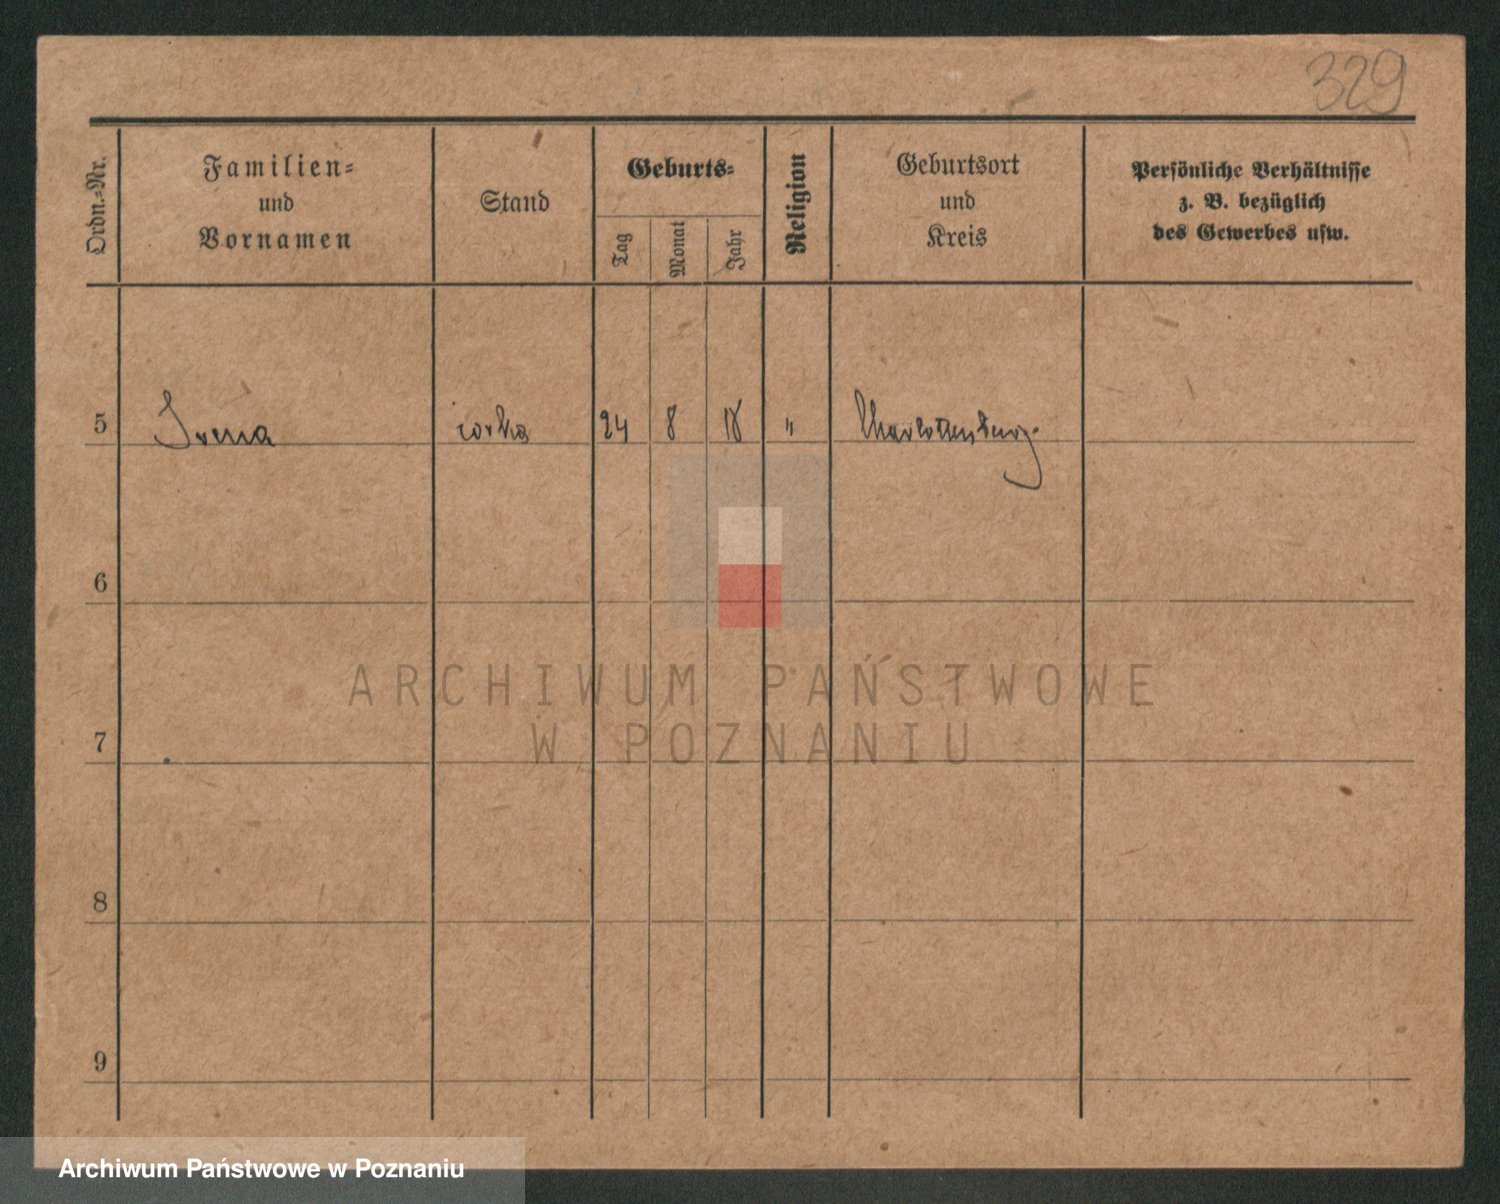 329
Ordn.-Nr.
Familien-
und
Vornamen
Stand
Geburts-
Tag
Monat
Jahr
Religion
Geburtsort
und
Kreis
Persönliche Verhältnisse
z. B. bezüglich
des Gewerbes usw.
5 Irena córka 24 8 18 " Charlottenburg
6
7
8
9
ARCHIWUM PAŃSTWOWE
W POZNANIU
Archiwum Państwowe w Poznaniu